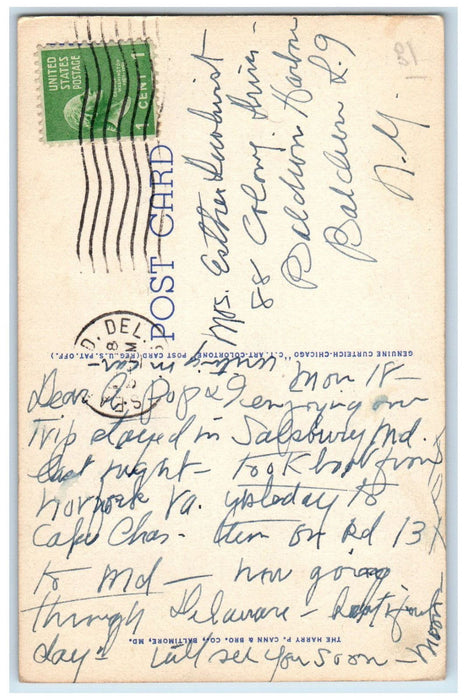 UNITED
STATES
POSTAGE
1 CENT 1
POST CARD
DEL.
Mrs. Esther
88 Colony Drive -
Baldwin Harbor
Baldwin L.I.
N.Y.
GENUINE CURTEICH-CHICAGO "C.T. ART-COLORTONE" POST CARD (REG. U.S. PAT. OFF.)
writing in car -
Nov 18 -
Dear Pop & enjoying our
Trip stayed in Salsbury Md.
last night - Took boat from
Norfolk Va. yesteday to
Cape Chas - then on Rd 13
to Md - now going
through Delaware - beautiful
day - will see you soon -
THE HARRY P. CANN & BRO. CO., BALTIMORE, MD.